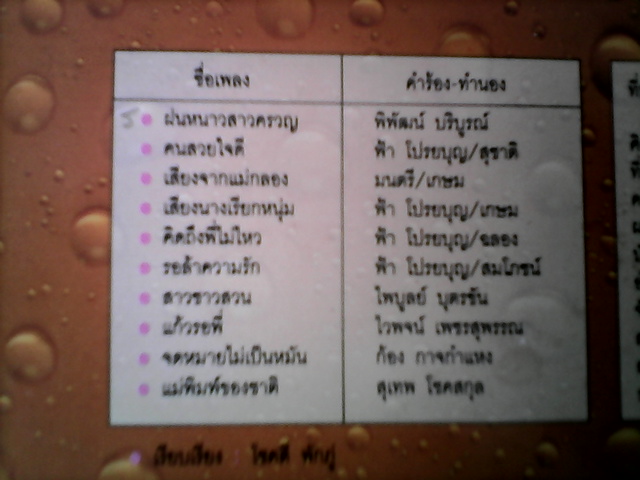 ชื่อเพลง คำร้อง-ทำนอง
ฝนหนาวสาวครวญ พิพัฒน์ บริบูรณ์
คนสวยใจดี ฟ้า โปรยบุญ/สุชาติ
เสียงจากแม่กลอง มนตรี/เกษม
เสียงนางเรียกหนุ่ม ฟ้า โปรยบุญ/เกษม
คิดถึงพี่ไม่ไหว ฟ้า โปรยบุญ/ฉลอง
รอล้าความรัก ฟ้า โปรยบุญ/สมโภชน์
สาวชาวสวน ไพบูลย์ บุตรขัน
แก้วรอพี่ ไวพจน์ เพชรสุพรรณ
จดหมายไม่เป็นหมัน ก้อง กาจกำแหง
แม่พิมพ์ของชาติ สุเทพ โชคสกุล
เรียบเรียง : โชคดี พักภู่